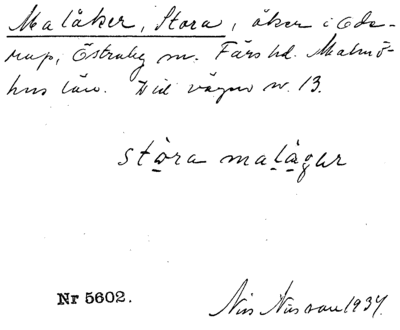 Malåker, Stora, åker i Eds-
rup, Östraby sn. Färs hd. Malmö-
hus län. Vid vägen nr. 13.
stòra malàgur
Nr 5602.
Nils Nilsson 1937.